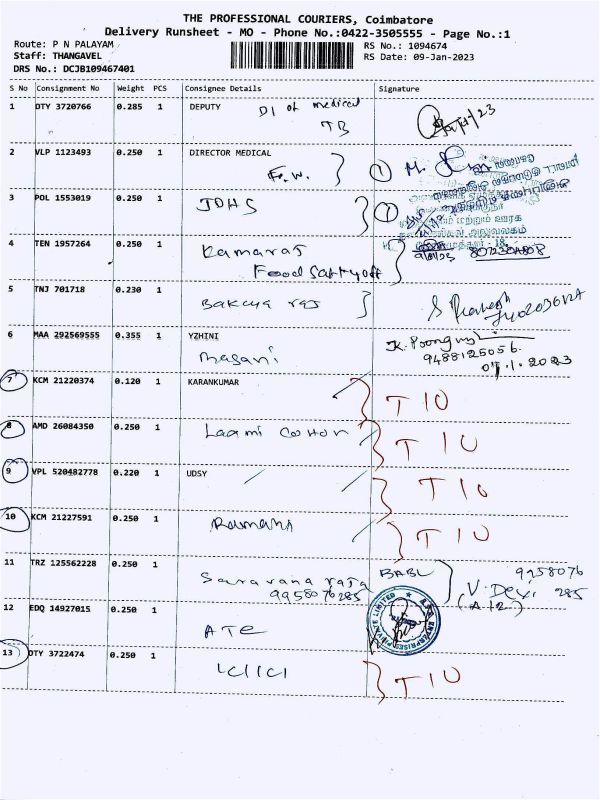 THE PROFESSIONAL COURIERS, Coimbatore
Delivery Runsheet - MO - Phone No.:0422-3505555 - Page No.:1
Route: P N PALAYAM
RS No.: 1094674
Staff: THANGAVEL
RS Date: 09-Jan-2023
DRS No.: DCJB109467401
S No Consignment No Weight PCS Consignee Details Signature
1 DTY 3720766 0.285 1 DEPUTY DI of medical
TB
2 VLP 1123493 0.250 1 DIRECTOR MEDICAL
F.W.
3 POL 1553019 0.250 1 JDHS
4 TEN 1957264 0.250 1 Kamaraj
Food
5 TNJ 701718 0.230 1 Bakeya raj
6 MAA 292569555 0.355 1 YZHINI
Masani
9488125056.
07.1.2023
7 KCM 21220374 0.120 1 KARANKUMAR T10
8 AMD 26084350 0.250 1 Laxmi Cotton T10
9 VPL 520482778 0.220 1 UDSY T10
10 KCM 21227591 0.250 1 Ramani T10
11 TRZ 125562228 0.250 1 Saravana raja BABL 9958076
9958076285 V. Devi 285
12 EDQ 14927015 0.250 1 ATE (A12)
13 DTY 3722474 0.250 1 LCICI T10